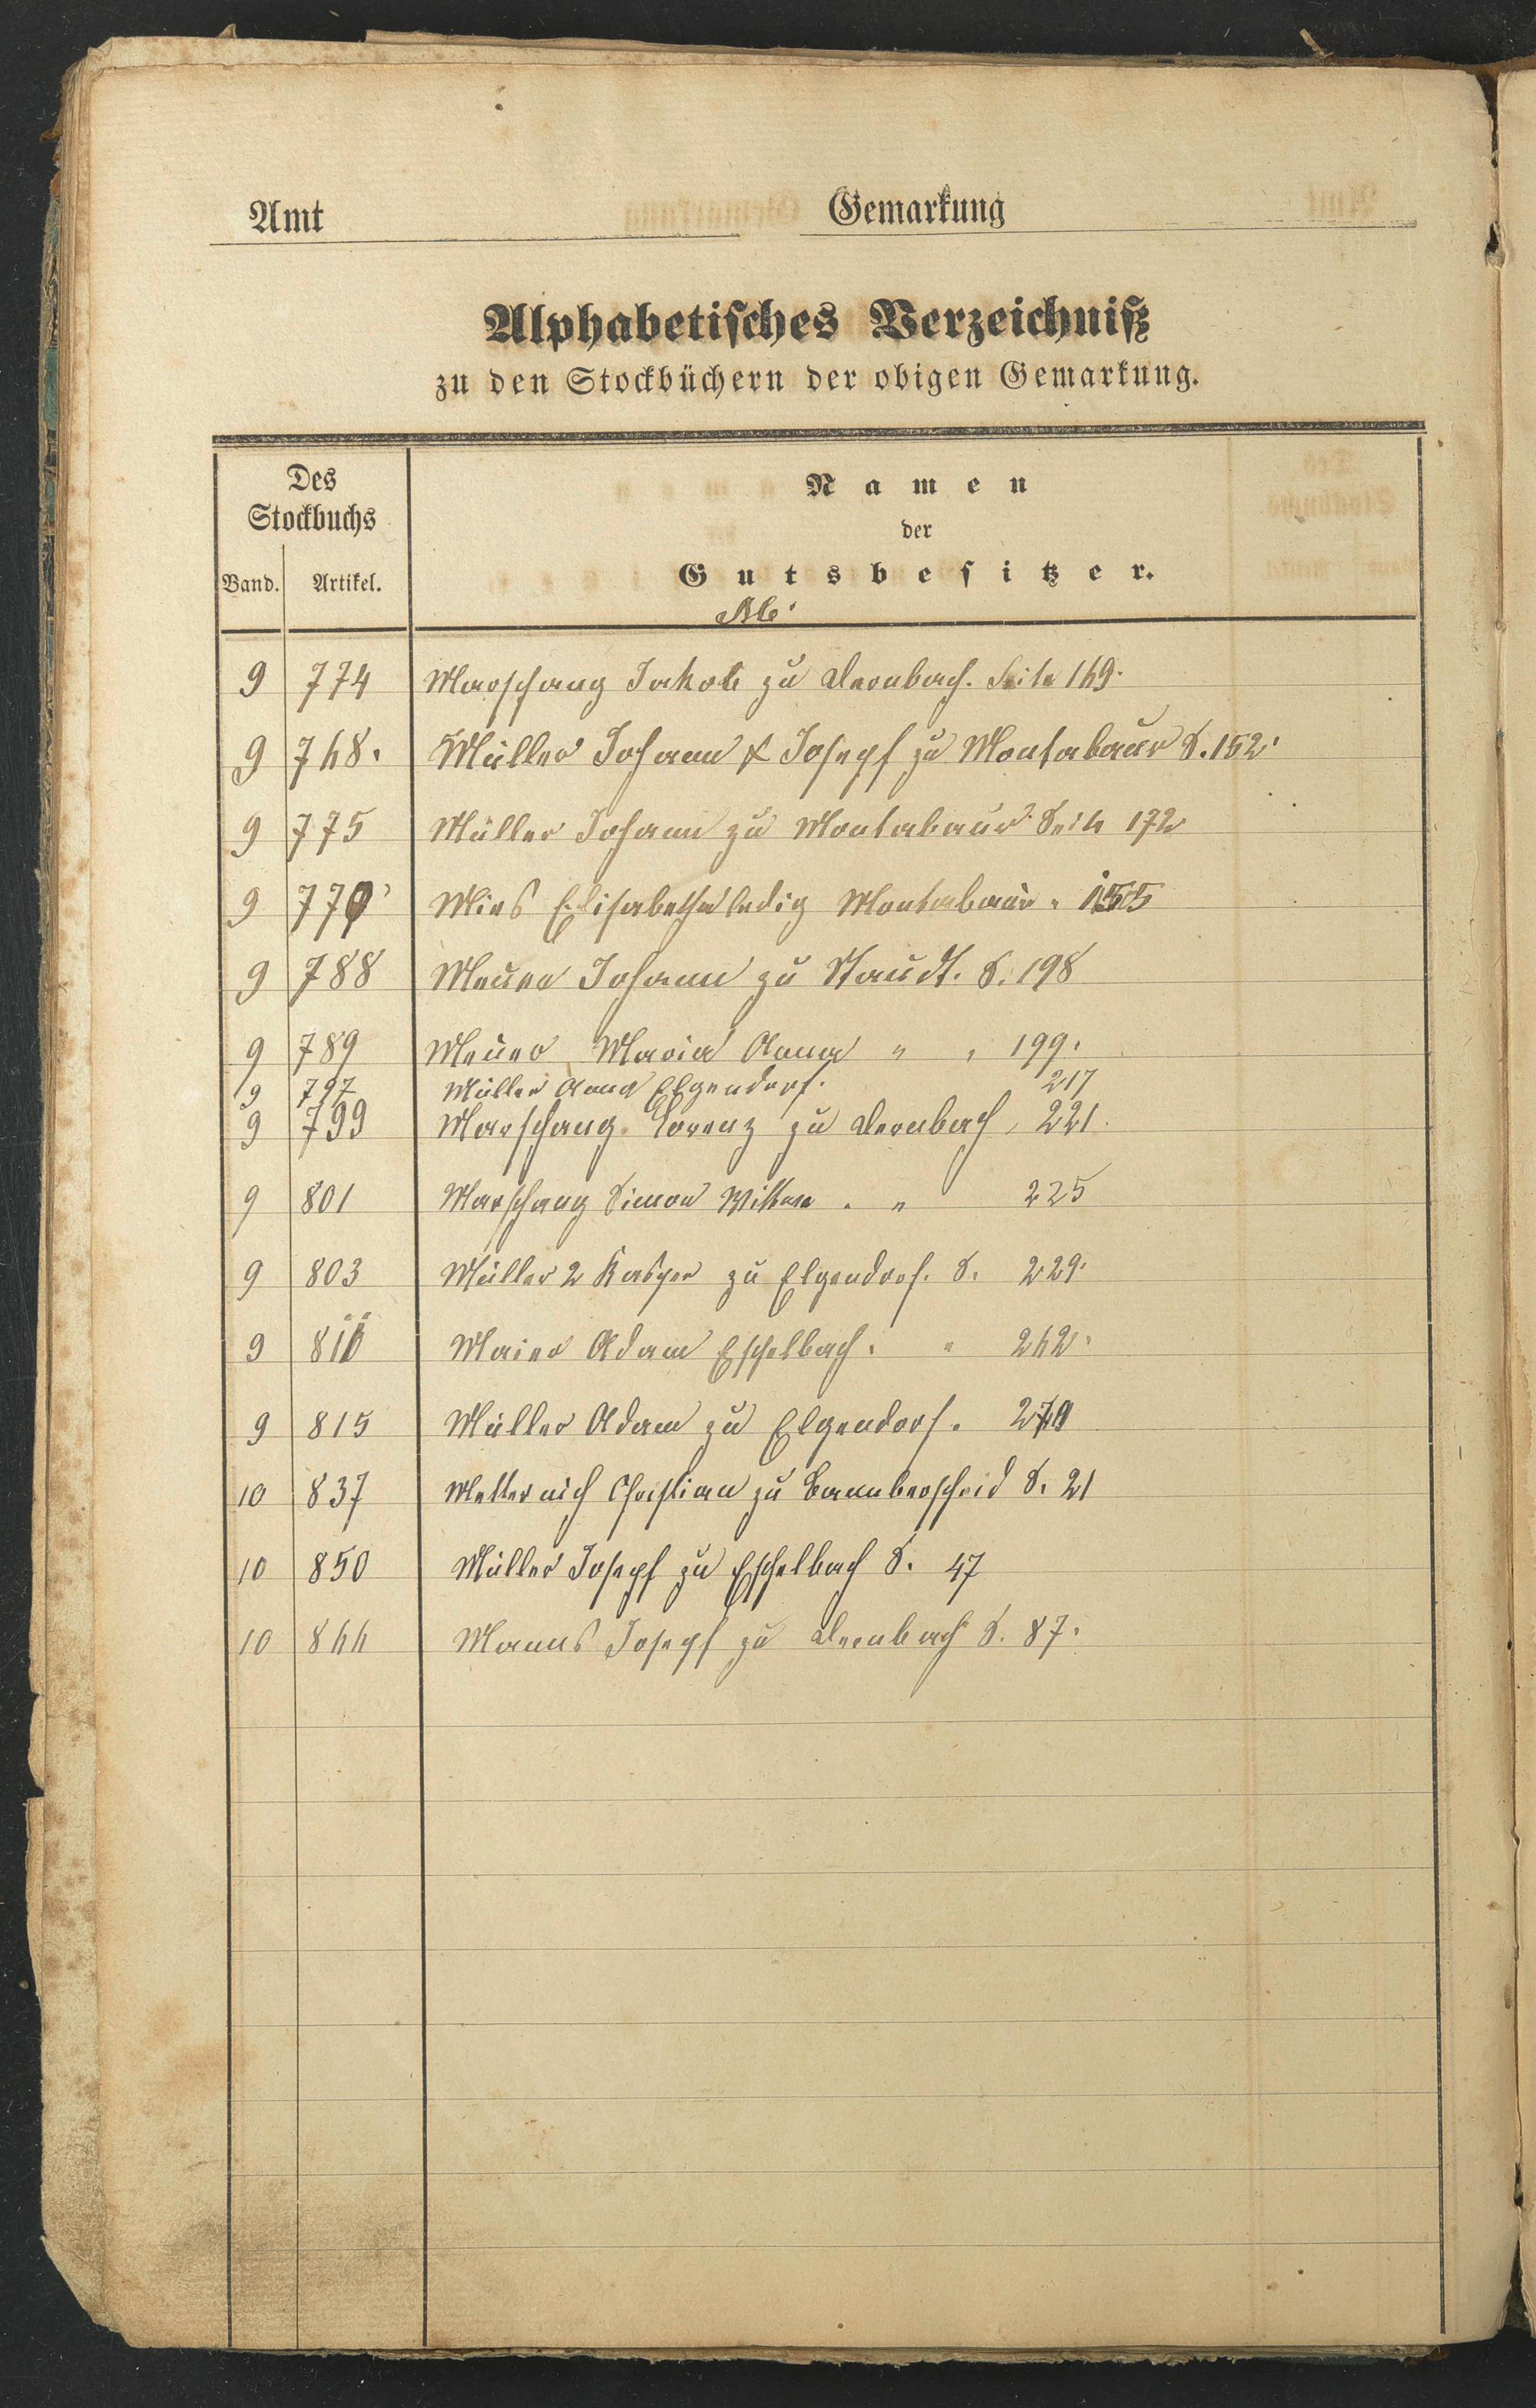 Amt
Gemarkung
Alphabetisches Verzeichniß
zu den Stockbüchern der obigen Gemarkung.
Des
Stockbuchs
Band. Artikel.
Namen
der
Gutsbesitzer.
9 774 Marschang Jakob zu Dernbach. Seite 169.
9 768. Müller Johann & Josepf zu Montabaur S. 152.
9 775 Müller Johann zu Montabaur Seite 172
9 770 Mies Elisabetha ledig Montabaur " 155
9 788 Meuer Johann zu Staudt. S. 198
9 789 Meuer Maria Anna " " 199.
9 797 Müller Anna Elgendorf. 217
9 799 Marschang Lorenz zu Dernbach " 221.
9 801 Marschang Simon Wittwe " " 225
9 803 Müller 2 Kasper zu Elgendorf. S. 229.
9 811 Maier Adam Eschelbach. " 262.
9 815 Müller Adam zu Elgendorf. 270
10 837 Metternich Christian zu Bannberscheid S. 21
10 850 Müller Josepf zu Eschelbach S. 47
10 866 Manns Josepf zu Dernbach S. 87.